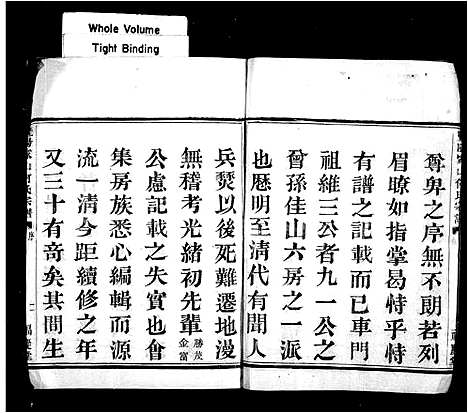 Whole Volume
Tight Binding
尊卑之序無不朗若列
眉瞭如指掌曷恃乎恃
有譜之記載而已車門
祖維三公者九一公之
曾孫佳山六房之一派
也歷明至清代有聞人
兵燹以後死難遷地漫
無稽考光緒初先輩勝茂金富
公慮記載之失實也會
集房族悉心編輯而源
流一清今距續修之年
又三十有奇矣其間生